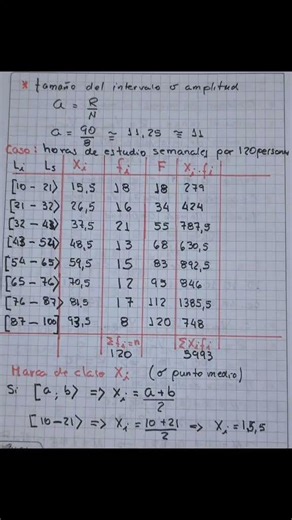 * tamaño del intervalo o amplitud
a = R/N
a = 90/8 ≅ 11,25 ≅ 11
Caso: horas de estudio semanales por 120 persona
Li Ls Xi fi F Xi.fi
[10 - 21⟩ 15,5 18 18 279
[21 - 32⟩ 26,5 16 34 424
[32 - 43⟩ 37,5 21 55 787,5
[43 - 54⟩ 48,5 13 68 630,5
[54 - 65⟩ 59,5 15 83 892,5
[65 - 76⟩ 70,5 12 95 846
[76 - 87⟩ 81,5 17 112 1385,5
[87 - 100] 93,5 8 120 748
Σfi = n ΣXifi
120 5993
Marca de clase Xi (o punto medio)
Si [a; b⟩ => Xi = a+b/2
[10-21⟩ => Xi = 10+21/2 => Xi = 15,5